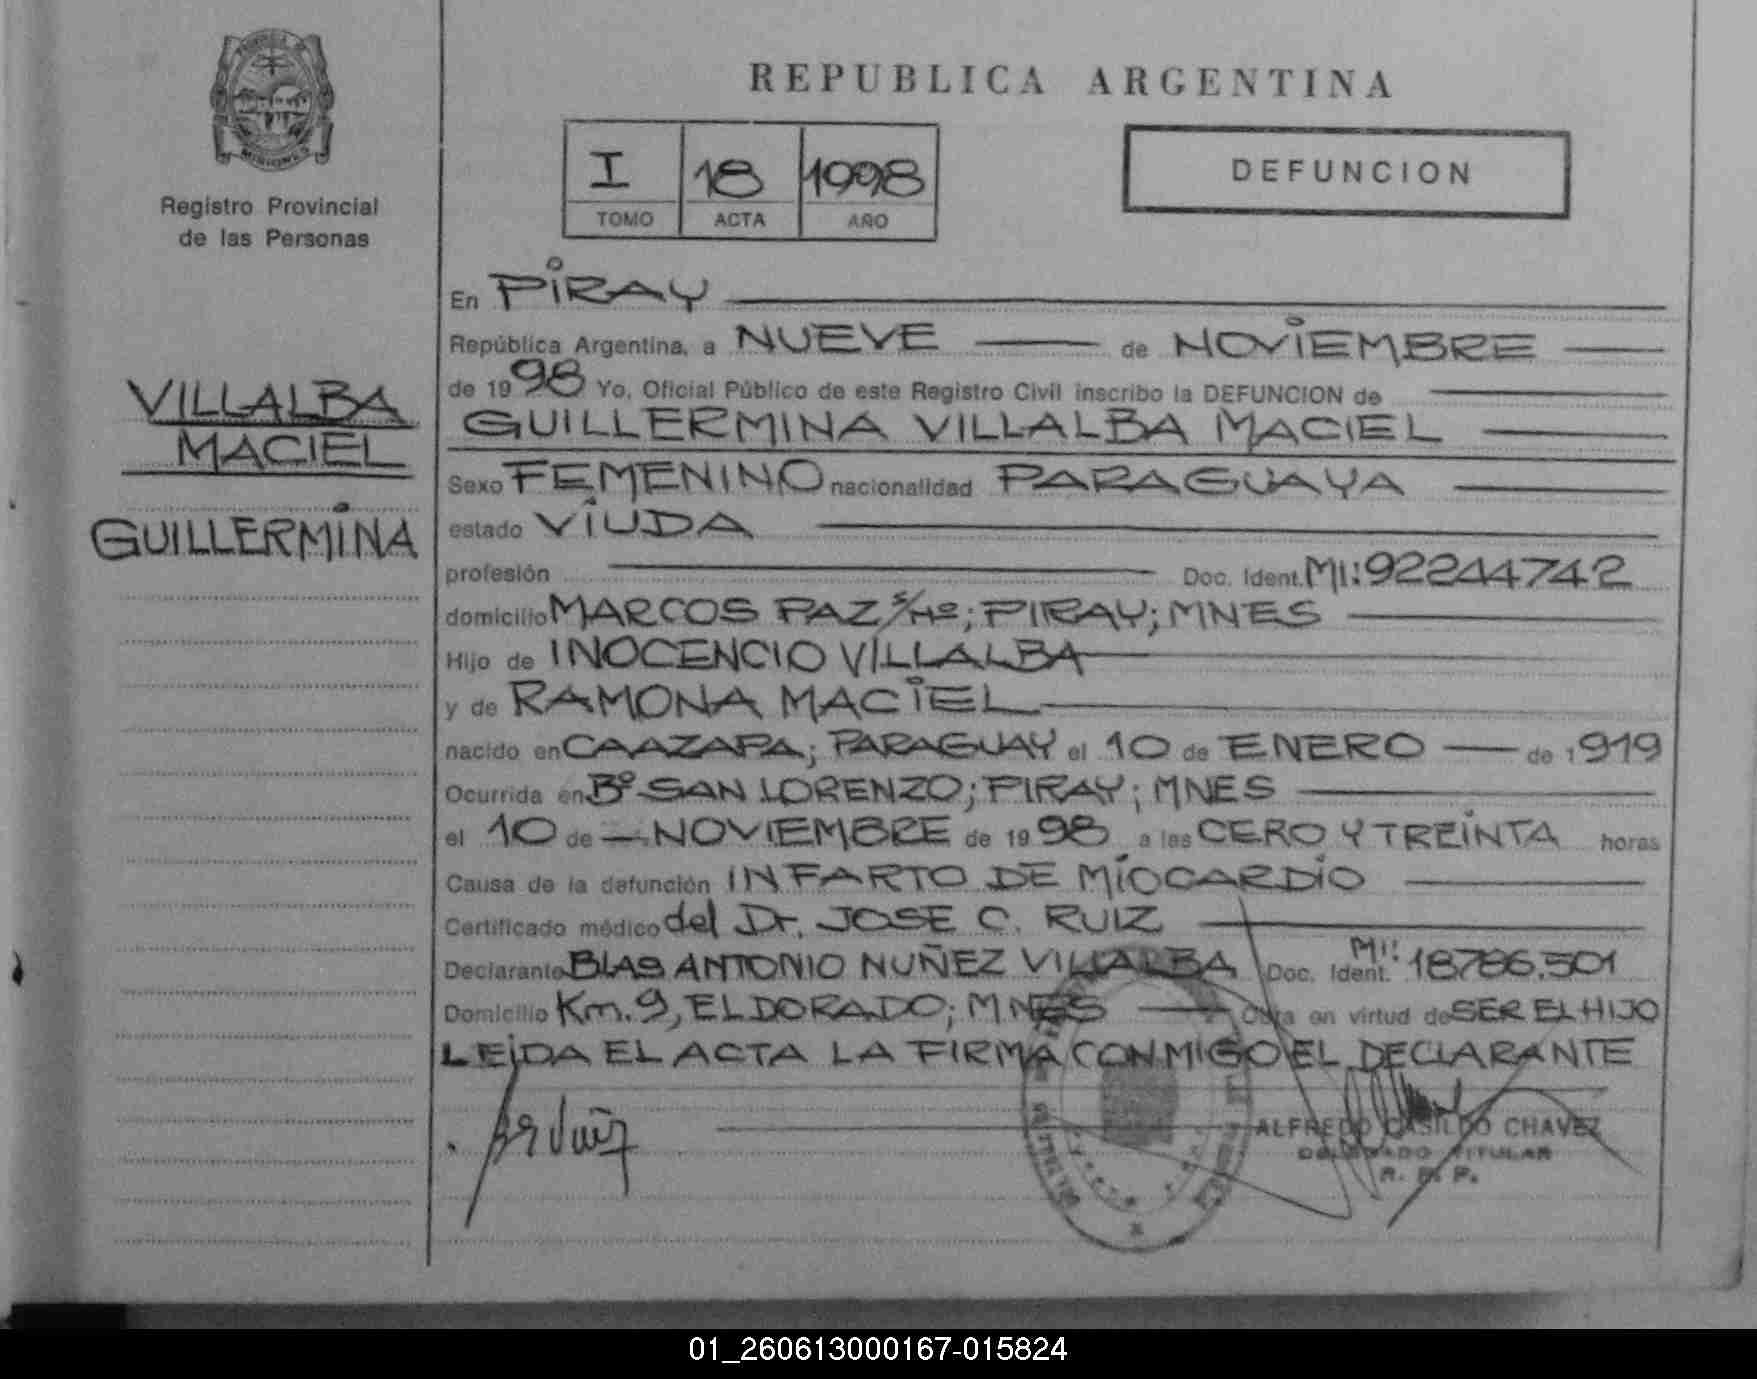 PROVINCIA DE
MISIONES
Registro Provincial
de las Personas
VILLALBA
MACIEL
GUILLERMINA
REPUBLICA ARGENTINA
I 18 1998
TOMO ACTA AÑO
DEFUNCION
En PIRAY
República Argentina, a NUEVE de NOVIEMBRE
de 1998 Yo, Oficial Público de este Registro Civil inscribo la DEFUNCION de
GUILLERMINA VILLALBA MACIEL
Sexo FEMENINO nacionalidad PARAGUAYA
estado VIUDA
profesión Doc. Ident. MI: 92244742
domicilio MARCOS PAZ S/Nº; PIRAY; MNES
Hijo de INOCENCIO VILLALBA
y de RAMONA MACIEL
nacido en CAAZAPA; PARAGUAY el 10 de ENERO de 1919
Ocurrida en Bº SAN LORENZO; PIRAY; MNES
el 10 de NOVIEMBRE de 1998 a las CERO Y TREINTA horas
Causa de la defunción INFARTO DE MIOCARDIO
Certificado médico del Dr. JOSE C. RUIZ
Declarante BLAS ANTONIO NUÑEZ VILLALBA Doc. Ident. MI: 18786.501
Domicilio Km. 9, ELDORADO; MNES Obra en virtud de SER EL HIJO
LEIDA EL ACTA LA FIRMA CONMIGO EL DECLARANTE
ALFREDO CASILDO CHAVEZ
DELEGADO TITULAR
R. P. P.
01_260613000167-015824